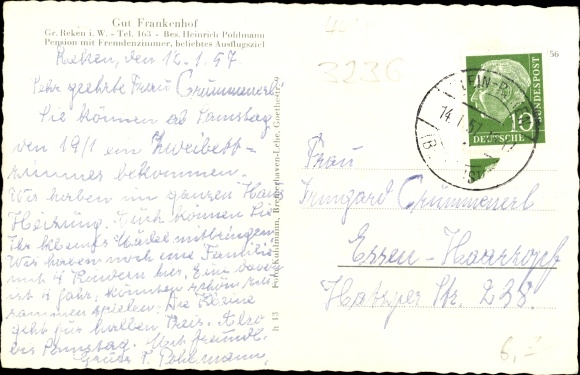 Gut Frankenhof
Gr. Reken i. W. - Tel. 163 - Bes. Heinrich Pohlmann
Pension mit Fremdenzimmer, beliebtes Ausflugsziel
Reken, den 12.1.57.
Sehr geehrte Frau Crummenerl!
Sie können ab Samstag
den 19/1 ein Zweibett-
zimmer bekommen.
Wir haben im ganzen Haus
Heizung. Auch können Sie
Ihr kleines Mädel mitbringen
Wir haben noch eine Familie
mit 4 Kindern hier, Eine davon
ist 4 Jahr, könnten schön zu-
sammen spielen. Die Kleine
geht für halben Preis. Also
bis Samstag. Mit freundl.
Gruss F. Pohlmann,
Foto Kuhlmann, Bremerhaven-Lehe, Goethestr. 9
h 13
3236
56
14.1.57
DEUTSCHE
BUNDESPOST
10
Frau
Irmgard Crummenerl
Essen-Haarzopf
Hatzper Str. 238.
6,-